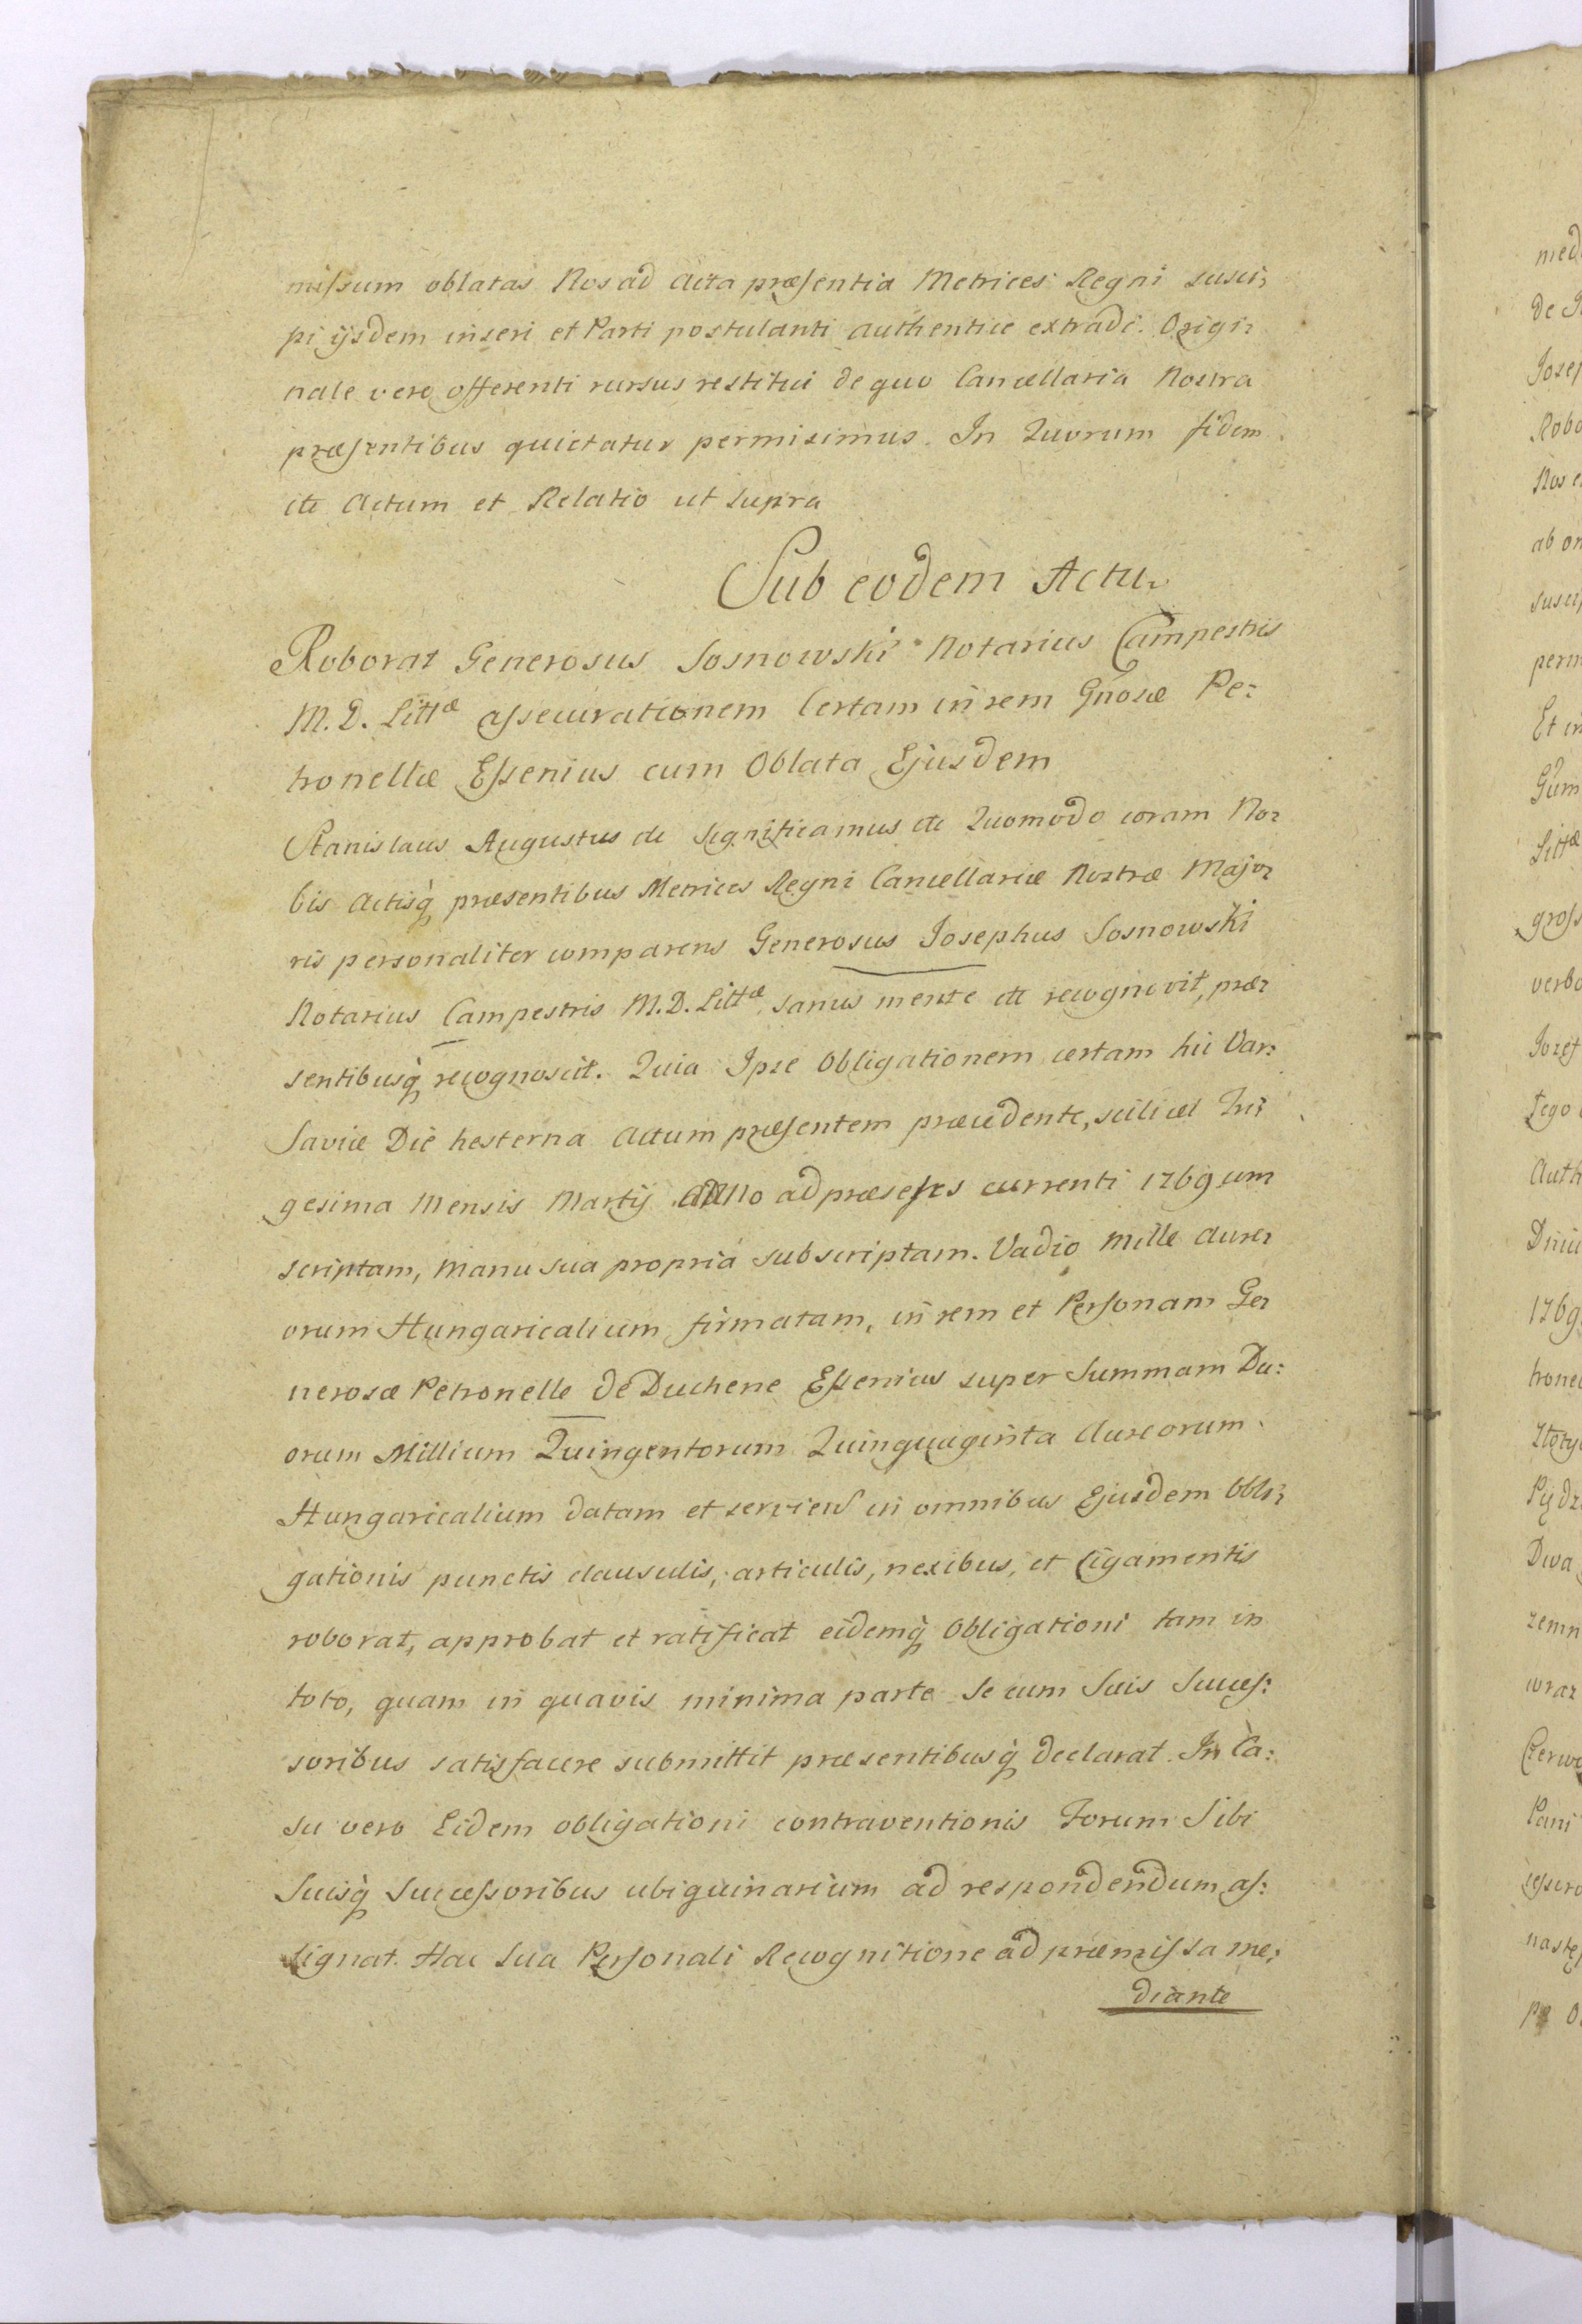 missum oblatas Nos ad Acta præsentia Metrices Regni susci-
pi ijsdem inseri et Parti postulanti authentice extradi. Origi-
nale vero offerenti rursus restitui de quo Cancellaria Nostra
præsentibus quietatur permisimus. In Quorum fidem
etc Actum et Relatio ut supra
Sub eodem Actu.
Roborat Generosus Sosnowski Notarius Campestris
M. D. Littæ assecurationem Certam in rem Gnosæ Pe:
tronellæ Essenius cum Oblata Ejusdem
Stanislaus Augustus etc Significamus etc Quomodo coram No-
bis Actisq præsentibus Metrices Regni Cancellariæ Nostræ Majo-
ris personaliter comparens Generosus Josephus Sosnowski
Notarius Campestris M. D. Littæ, sanus mente etc recognovit, præ-
sentibusq recognoscit. Quia Ipse Obligationem certam hic Var:
saviæ Die hesterna Actum præsentem præcedente, scilicet Tri-
gesima Mensis Martij Anno ad præsens currenti 1769 um
scriptam, Manu sua propria subscriptam. Vadio Mille Aure-
orum Hungaricalium firmatam, in rem et Personam Ge-
nerosæ Petronelle de Duchene Essenius super Summam Du:
orum Millium Quingentorum Quinquaginta Aureorum
Hungaricalium datam et servien in omnibus Ejusdem Obli-
gationis punctis clausulis, articulis, nexibus, et ligamentis
roborat, approbat et ratificat eidemq Obligationi tam in
toto, quam in quavis minima parte Se cum Suis Succes:
soribus satisfacere submittit præsentibusq declarat. In Ca:
su vero Eidem obligationi contraventionis Forum Sibi
Suisq Successoribus ubiquinarium ad respondendum as:
signat. Hac Sua Personali Recognitione ad præmissa me-
diante